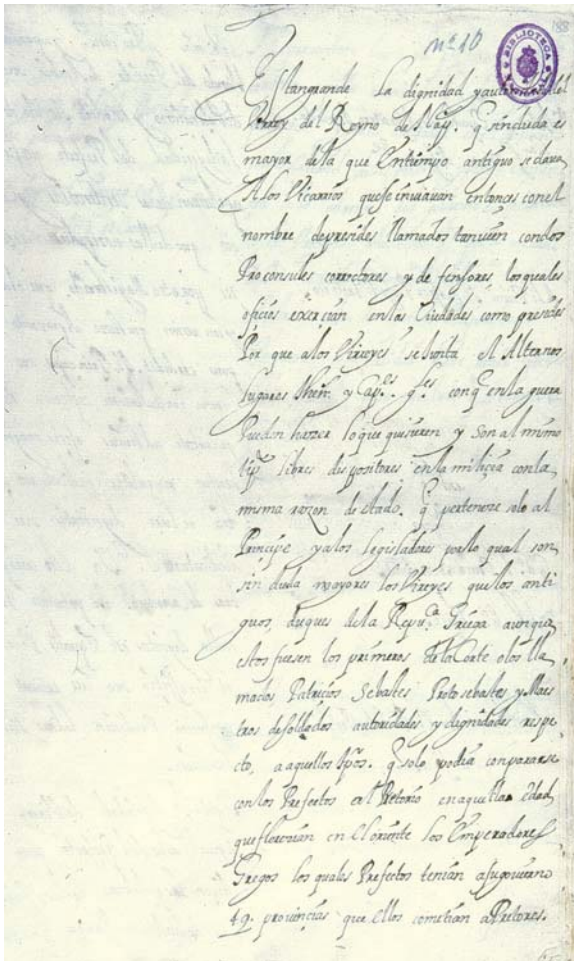 nº 10
BIBLIOTECA
Es tan grande La dignidad y autoridad del
Virrey del Reyno de Nap. q sin duda es
mayor de la que En tiempo antiguo se dava
A los Vicarios que se inviavan entonces con el
nombre de presides llamados tanvien condos
Proconsules correctores y defensores, los quales
oficios exercian en las Ciudades como presides
Por que a los Virreyes se Junta el Alternos
lugares theni. y Cap.es g.les con q en la guerra
Pueden hazer lo que quisieren y son al mismo
tipº. libres dispositores en la miliçia con la
misma razon de estado. q perteneze solo al
Principe y a los Legisladores por lo qual son
sin duda mayores los Vireyes que los anti
guos, duques de la Repu.ca Griega aunque
estos fuesen los primeros de la Corte o los lla
mados Patricios Sebastes Protosebastes y Maes
tros de soldados autoridades y dignidades respe
cto, a aquellos tpos. q solo podia conpararse
con los Prefectos del Pretorio en aquella edad
que florezian en el oriente los Emperadores
Gregos los quales Prefectos tenian a su govierno
49. provinçias que Ellos cometian a Pretores.